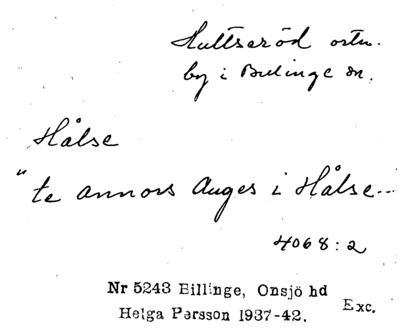 Hultseröd ortn.
by i Billinge sn.
Hålse
"te annors Auges i Hålse...
4068:2
Nr 5243 Billinge, Onsjö hd
Exc.
Helga Persson 1937-42.